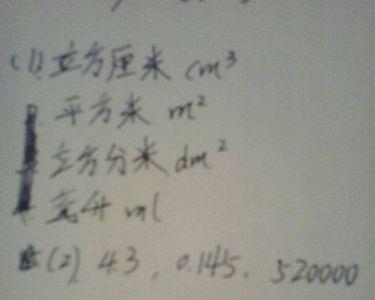 (1).立方厘米 cm³
平方米 m²
立方分米 dm²
毫升 ml
(2) 43, 0.145, 520000